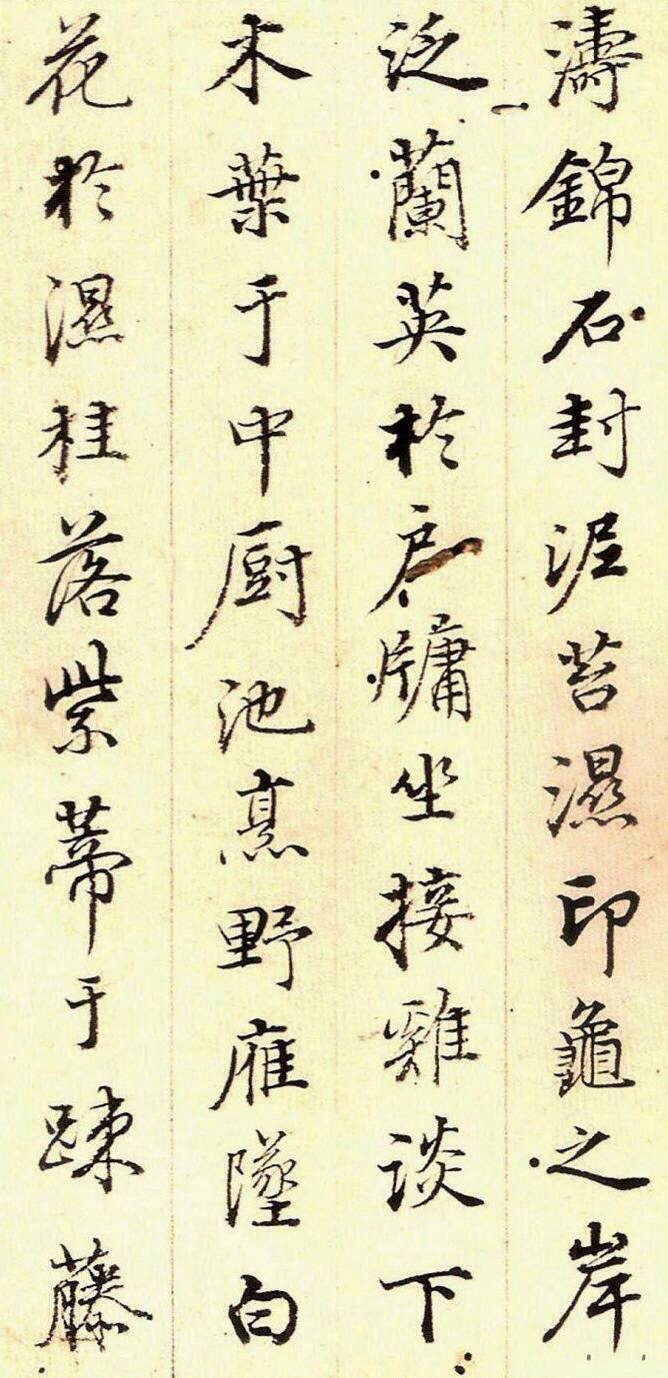 濤錦石封泥苔濕印龜之岸
泛蘭英於戶牖坐接雞談下
木葉于中厨池亭野雁墜白
花於濕桂落紫蒂于踈藤